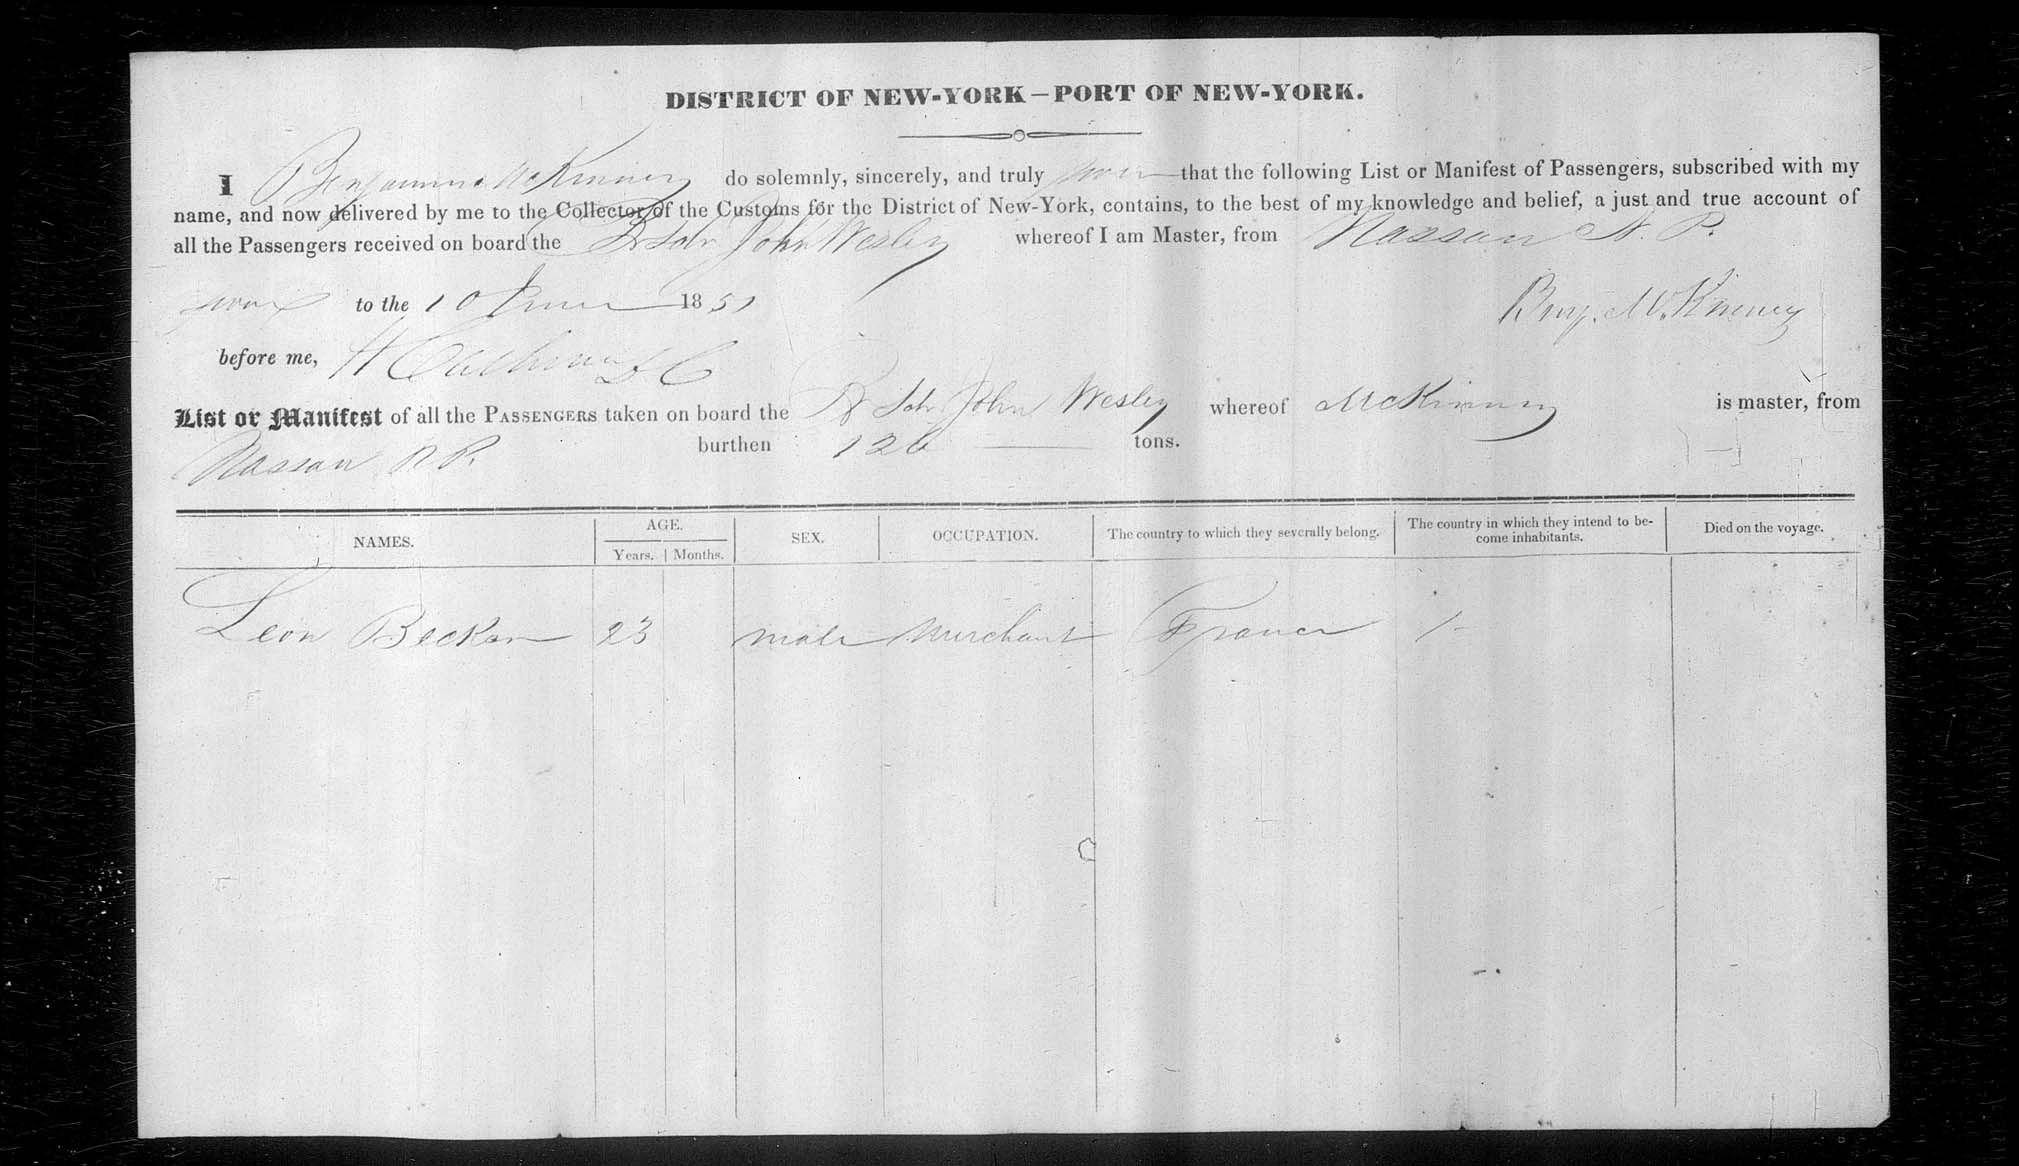 DISTRICT OF NEW-YORK—PORT OF NEW-YORK.
I Benjamin McKinney do solemnly, sincerely, and truly swear that the following List or Manifest of Passengers, subscribed with my
name, and now delivered by me to the Collector of the Customs for the District of New-York, contains, to the best of my knowledge and belief, a just and true account of
all the Passengers received on board the Br Schr John Wesley whereof I am Master, from Nassau N. P.
to the 10 June 1851 Benj. McKinney
before me,
List or Manifest of all the PASSENGERS taken on board the Br Schr John Wesley whereof McKinney is master, from
Nassau N P. burthen 126 tons.
NAMES. AGE. Years. Months. SEX. OCCUPATION. The country to which they severally belong. The country in which they intend to become inhabitants. Died on the voyage.
Leon Becker 23 male Merchant France